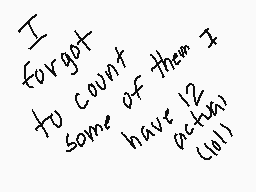 I
forgot
to count
some of them I
have 12
actual
(lol)